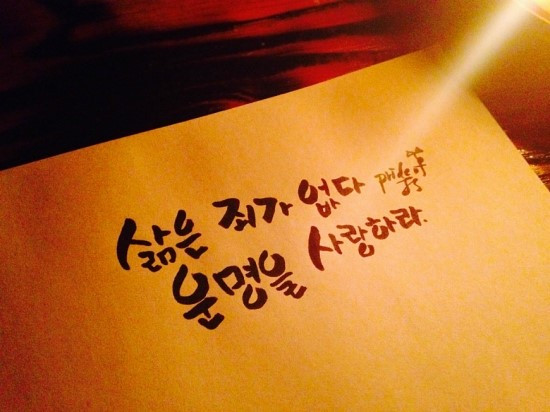 삶은 죄가 없다
운명을 사랑하라.